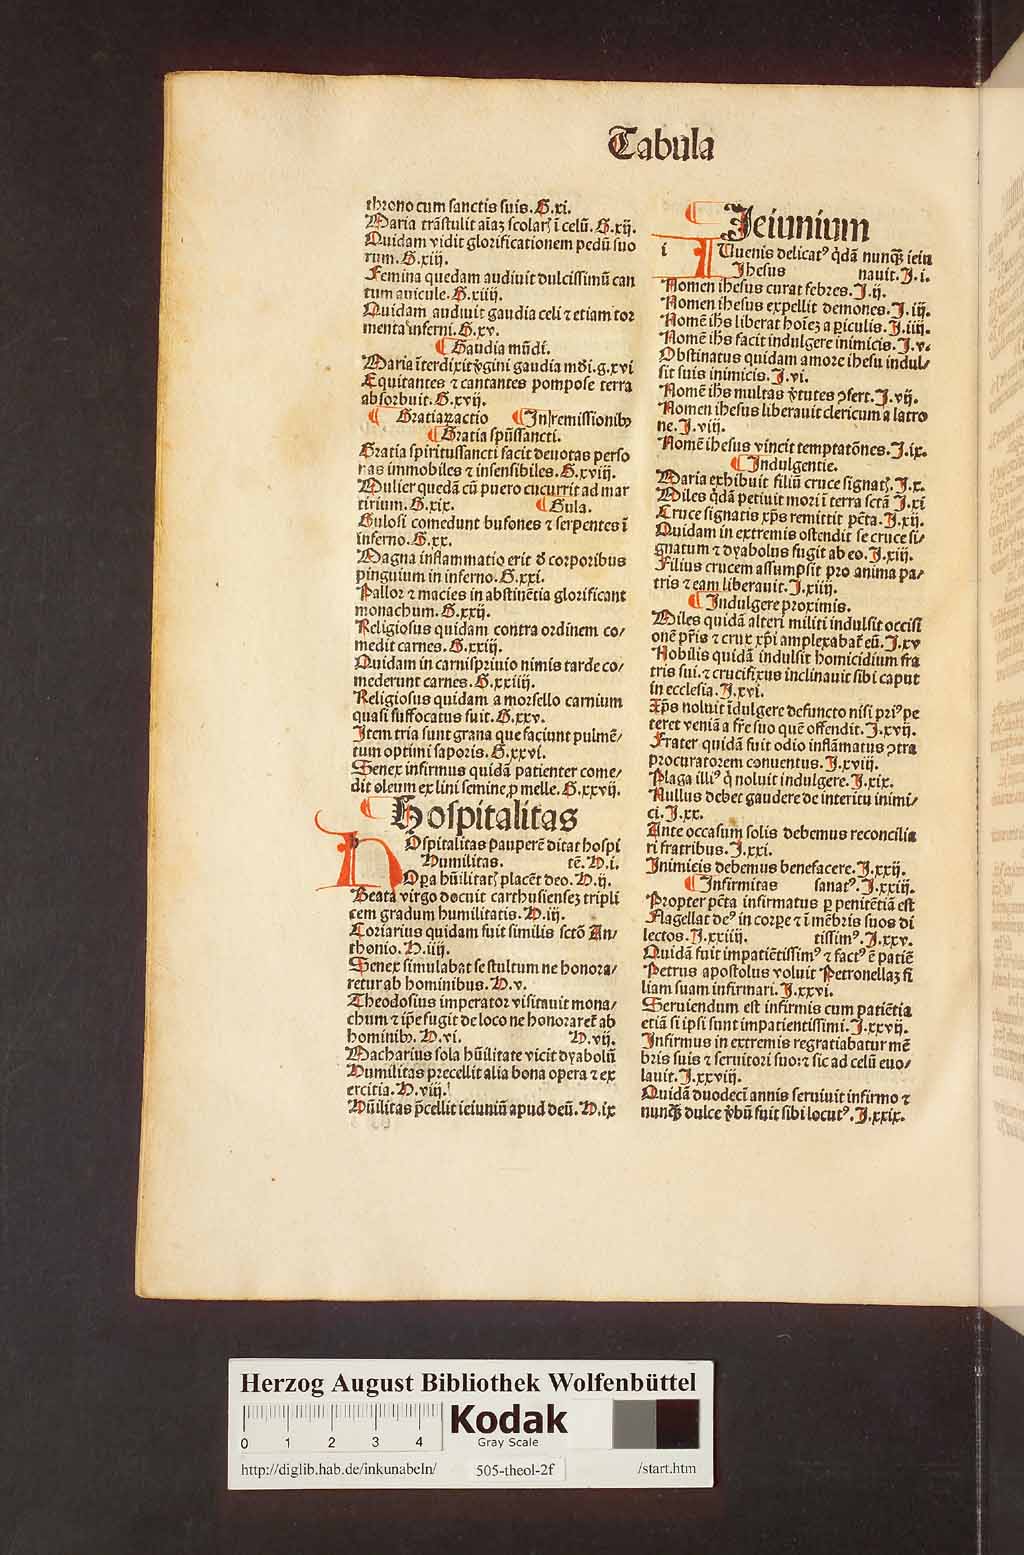 Tabula
throno cum sanctis suis. G.xi.
Maria trāstulit aīaꝫ scolarꝭ ī celū. G.xij.
Quidam vidit glorificationem pedū suo
rum. G.xiij.
Femina quedam audiuit dulcissimū can
tum auicule. G.xiiij.
Quidam audiuit gaudia celi ⁊ etiam tor
menta inferni. G.xv.
¶ Gaudia mūdi.
Maria īterdixit v̄gini gaudia mūdi. g.xvi
Equitantes ⁊ cantantes pompose terra
absorbuit. G.xvij.
¶ Gratiaꝝactio ¶ In remissionibꝰ
¶ Gratia spūssancti.
Gratia spiritussancti facit deuotas perso
nas immobiles ⁊ insensibiles. G.xviij.
Mulier quedā cū puero cucurrit ad mar
tirium. G.xix. ¶ Gula.
Gulosi comedunt bufones ⁊ serpentes ī
inferno. G.xx.
Magna inflammatio erit d̓ corporibus
pinguium in inferno. G.xxi.
Pallor ⁊ macies in abstinētia glorificant
monachum. G.xxij.
Religiosus quidam contra ordinem co/
medit carnes. G.xxiij.
Quidam in carnispriuio nimis tarde co/
mederunt carnes. G.xxiiij.
Religiosus quidam a morsello carnium
quasi suffocatus fuit. G.xxv.
Item tria sunt grana que faciunt pulmē/
tum optimi saporis. G.xxvi.
Senex infirmus quidā patienter come/
dit oleum ex lini semine ꝓ melle. G.xxvij.
¶ Hospitalitas
HOspitalitas pauperē ditat hospi
Humilitas. tē. H.i.
Opa hūilitatꝭ placēt deo. H.ij.
Beata virgo docuit carthusiensеꝫ tripli
cem gradum humilitatis. H.iij.
Coriarius quidam fuit similis sctō An/
thonio. H.iiij.
Senex simulabat se stultum ne honora/
retur ab hominibus. H.v.
Theodosius imperator visitauit mona/
chum ⁊ ip̄e fugit de loco ne honoraretꝭ ab
hominibꝰ. H.vi. H.vij.
Macharius sola hūilitate vicit dyabolū
Humilitas precellit alia bona opera ⁊ ex
ercitia. H.viij.
Hūilitas p̄cellit ieiuniū apud deū. H.ix
¶ Ieiunium
i IUuenis delicatꝰ q̄dā nunqꝫ ieiu
Ihesus nauit. I.i.
Nomen ihesus curat febres. I.ij.
Nomen ihesus expellit demones. I.iij.
Nomē ihūs liberat hoīeꝫ a periculis. I.iiij.
Nomē ihūs facit indulgere inimicis. I.v.
Obstinatus quidam amore ihesu indul/
sit suis inimicis. I.vi.
Nomē ihūs multas v̓tutes ꝯfert. I.vij.
Nomen ihesus liberauit clericum a latro
ne. I.viij.
Nomē ihesus vincit temptatōnes. I.ix.
¶ Indulgentie.
Maria exhibuit filiū cruce signatꝭ. I.x.
Miles q̄dā petiuit mori ī terra sctā I.xi
Cruce signatis xp̄s remittit pctā. I.xij.
Quidam in extremis ostendit se cruce si/
gnatum ⁊ dyabolus fugit ab eo. I.xiij.
Filius crucem assumpsit pro anima pa/
tris ⁊ eam liberauit. I.xiiij.
¶ Indulgere proximis.
Miles quidā alteri militi indulsit occisi
onē pr̄is ⁊ crux xp̄i amplexabatꝭ eū. I.xv
Nobilis quidā indulsit homicidium fra
tris sui. ⁊ crucifixus inclinauit sibi caput
in ecclesia. I.xvi.
Xp̄s noluit īdulgere defuncto nisi priꝰ pe
teret veniā a fr̄e suo quē offendit. I.xvij.
Frater quidā fuit odio inflāmatus ꝯtra
procuratorem conuentus. I.xviij.
Plaga illiꝰ q̇ noluit indulgere. I.xix.
Nullus debet gaudere de interitu inimi/
ci. I.xx.
Ante occasum solis debemus reconcilia
ri fratribus. I.xxi.
Inimicis debemus benefacere. I.xxij.
¶ Infirmitas sanatꝰ. I.xxiij.
Propter pctā infirmatus ꝑ penitētiā est
Flagellat deꝰ in corꝑe ⁊ ī mēbris suos di
lectos. I.xxiiij. tissimꝰ. I.xxv.
Quidā fuit impatiētissimꝰ ⁊ factꝰ ē patiē
Petrus apostolus voluit Petronellaꝫ fi
liam suam infirmari. I.xxvi.
Seruiendum est infirmis cum patiētia
etiā si ipsi sunt impatientissimi. I.xxvij.
Infirmus in extremis regratiabatur mē
bris suis ⁊ seruitori suo: ⁊ sic ad celū euo/
lauit. I.xxviij.
Quidā duodecī annis seruiuit infirmo ⁊
nunqꝫ dulce v̓bū fuit sibi locutꝰ. I.xxix.
Herzog August Bibliothek Wolfenbüttel
0 1 2 3 4
Kodak
Gray Scale
http://diglib.hab.de/inkunabeln/ 505-theol-2f /start.htm